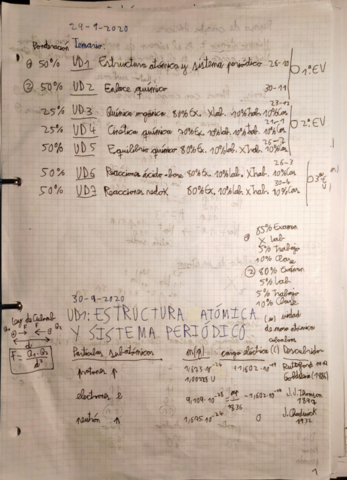 29-9-2020
Ponderación Temario:
① 50% UD1 Estructura atómica y sistema periódico 26-10
② 50% UD2 Enlace químico 30-11
1ª EV
25% UD3 Química orgánica 80% Ex. X Lab 10% Trab. 10% Cas
25% UD4 Cinética química 70% Ex. 10% Lab. 10% Trab. 10% Cas
2ª EV
50% UD5 Equilibrio químico 70% Ex. 10% Lab. X Trab. 10% Cas
50% UD6 Reacciones ácido-base 80% Ex. 10% Lab. X Trab. 10% Cas
50% UD7 Reacciones redox 80% Ex. 10% Lab. X Trab. 10% Cas
① 85% Examen
X Lab
5% Trabajo
10% Clase
② 80% Examen
5% Lab
5% Trabajo
10% Clase
30-9-2020
UD1: ESTRUCTURA ATÓMICA
Y SISTEMA PERIÓDICO
Ley de Coulomb
(u) unidad
de masa atómica
Partículas subatómicas m(g) carga eléctrica (C) Descubridor
protones p
Goldstein (1886)
electrones e J.J. Thomson
1897
neutrón n 0 J. Chadwick
1932
1